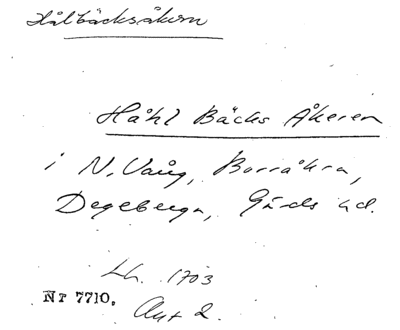 Hålbäcksåkern
Håhl Bäcks Åkeren
i N. Vång, Borråkra,
Degeberga, Gärds hd.
Lh. 1703
Nr 7710. Akt 2.